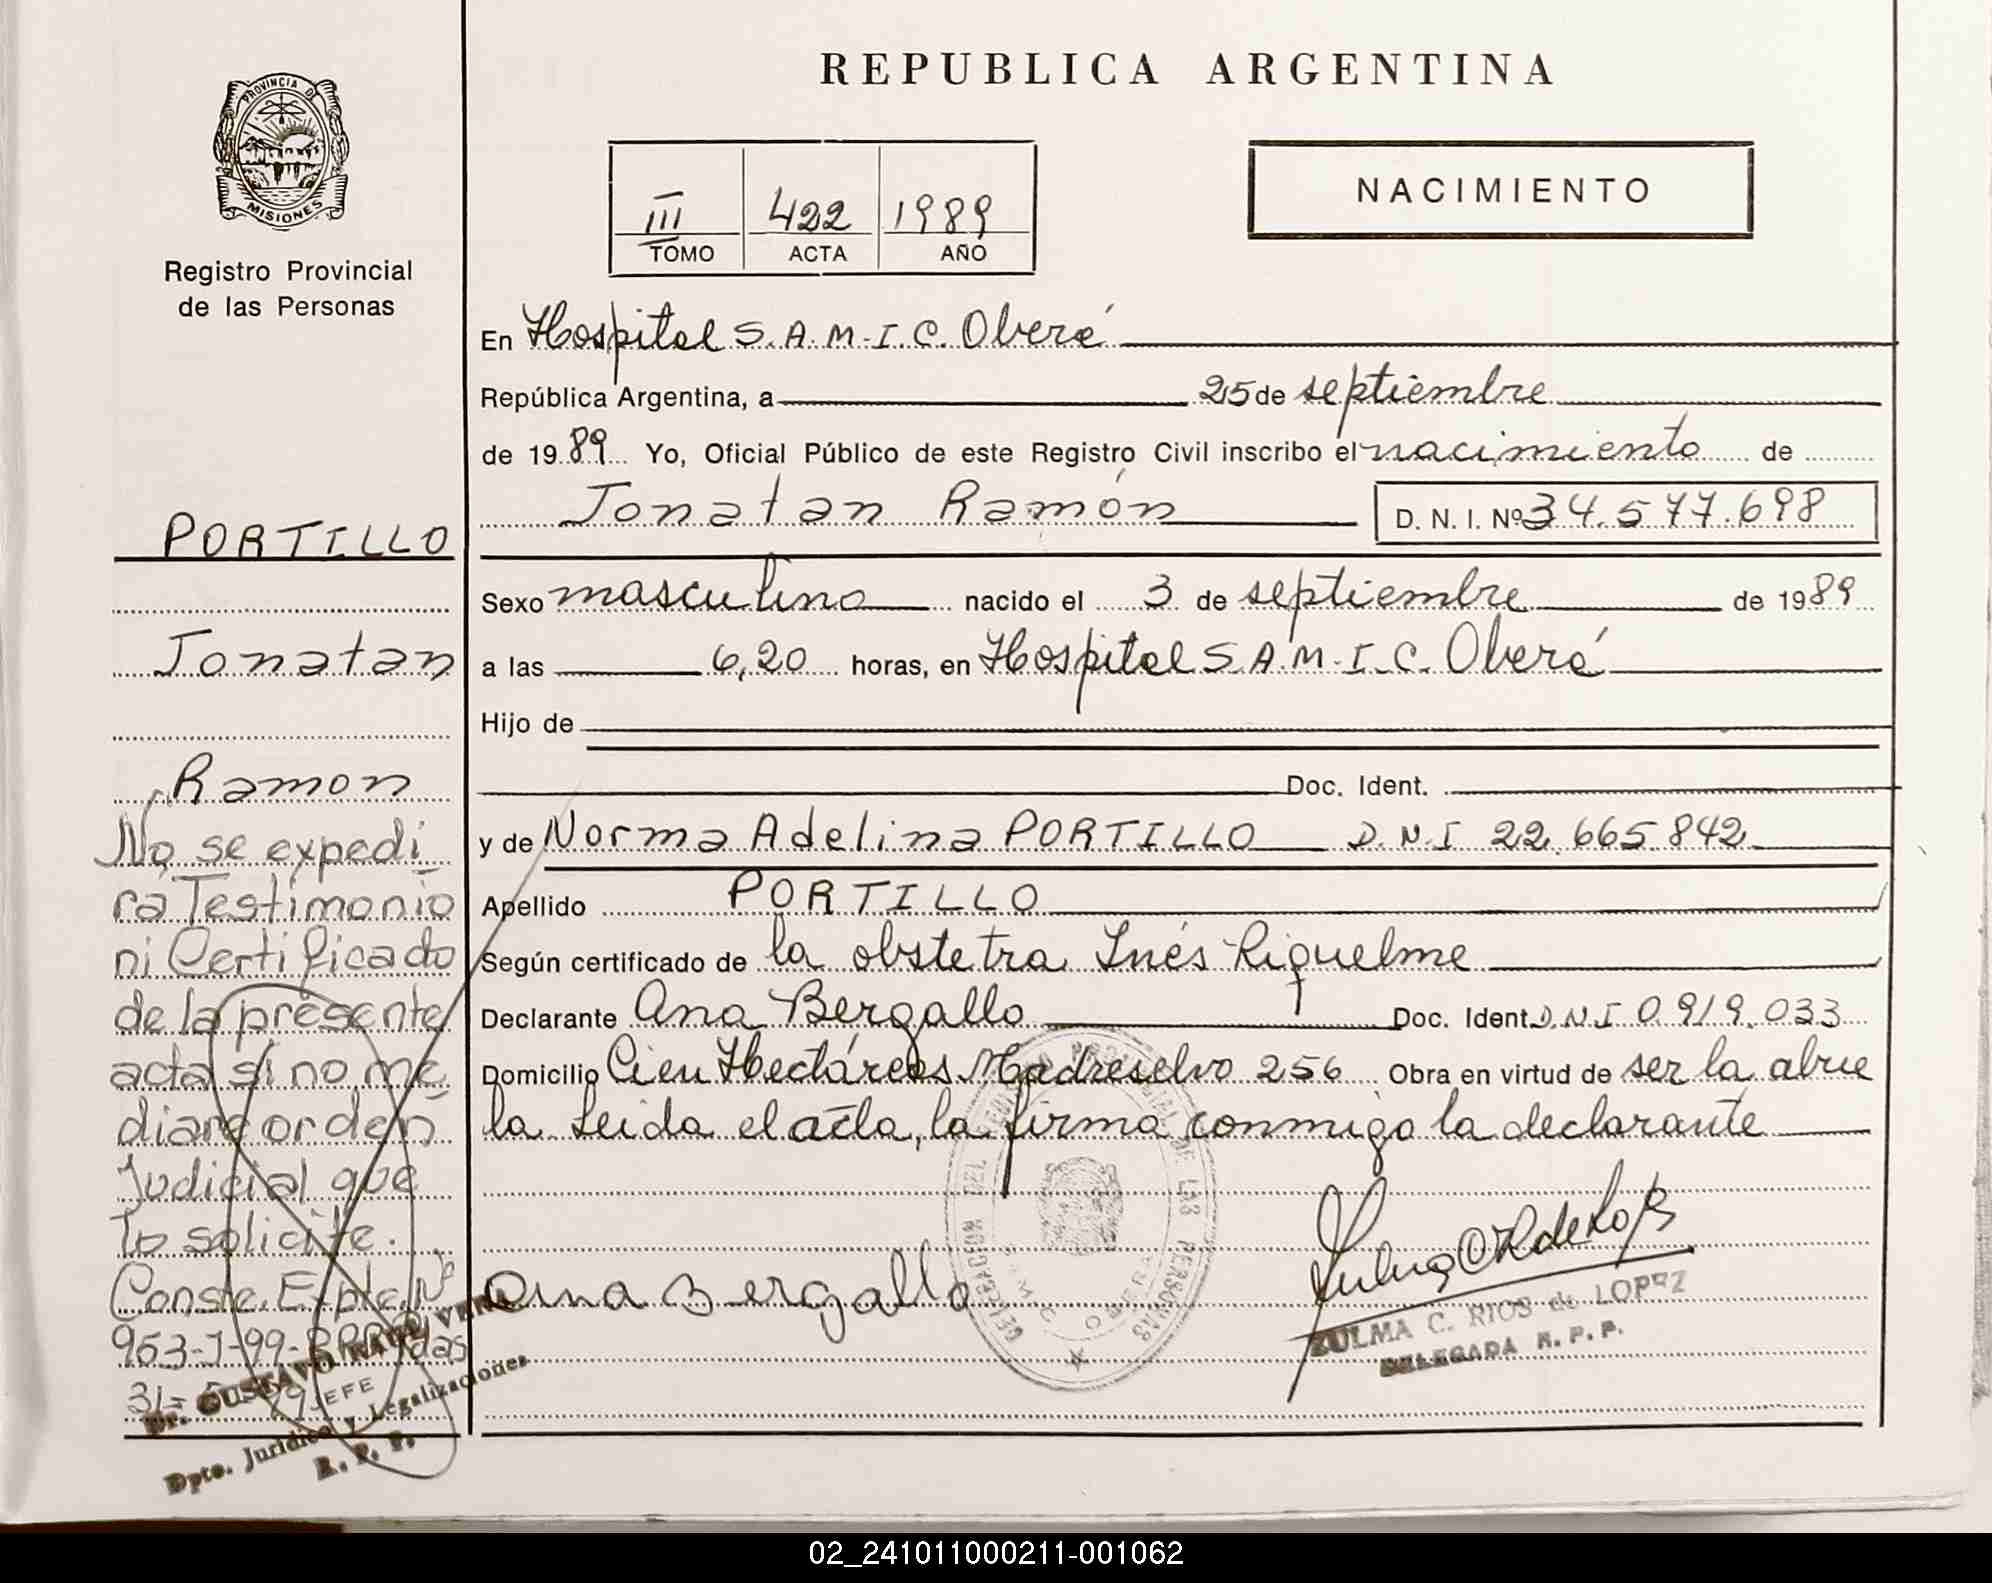 REPUBLICA ARGENTINA
PROVINCIA DE
MISIONES
Registro Provincial
de las Personas
III 422 1989
TOMO ACTA AÑO
NACIMIENTO
En Hospital S.A.M.I.C. Oberá
República Argentina, a 25 de septiembre
de 1989 Yo, Oficial Público de este Registro Civil inscribo el nacimiento de
Jonatan Ramón D. N. I. Nº 34.577.698
Sexo masculino nacido el 3 de septiembre de 1989
a las 6,20 horas, en Hospital S.A.M.I.C. Oberá
Hijo de
Doc. Ident.
y de Norma Adelina PORTILLO D.N.I 22.665.842
Apellido PORTILLO
Según certificado de la obstetra Inés Riquelme
Declarante Ana Bergallo Doc. Ident. D.N.I 0.919.033
Domicilio Cien Hectáreas Madreselva 256 Obra en virtud de ser la abue
la Leida el acta, la firma conmigo la declarante
Ana Bergallo
ZULMA C. RIOS de LOPEZ
DELEGADA R. P. P.
PORTILLO
Jonatan
Ramon
No se expedi
rá Testimonio
ni Certificado
de la presente
acta si no me
diare orden
Judicial que
lo solicite.
Conste. Expte. Nº
953-J-99-
31-
Dr. GUSTAVO
JEFE
Dpto. Jurídico y Legalizaciones
R. P. P.
02_241011000211-001062